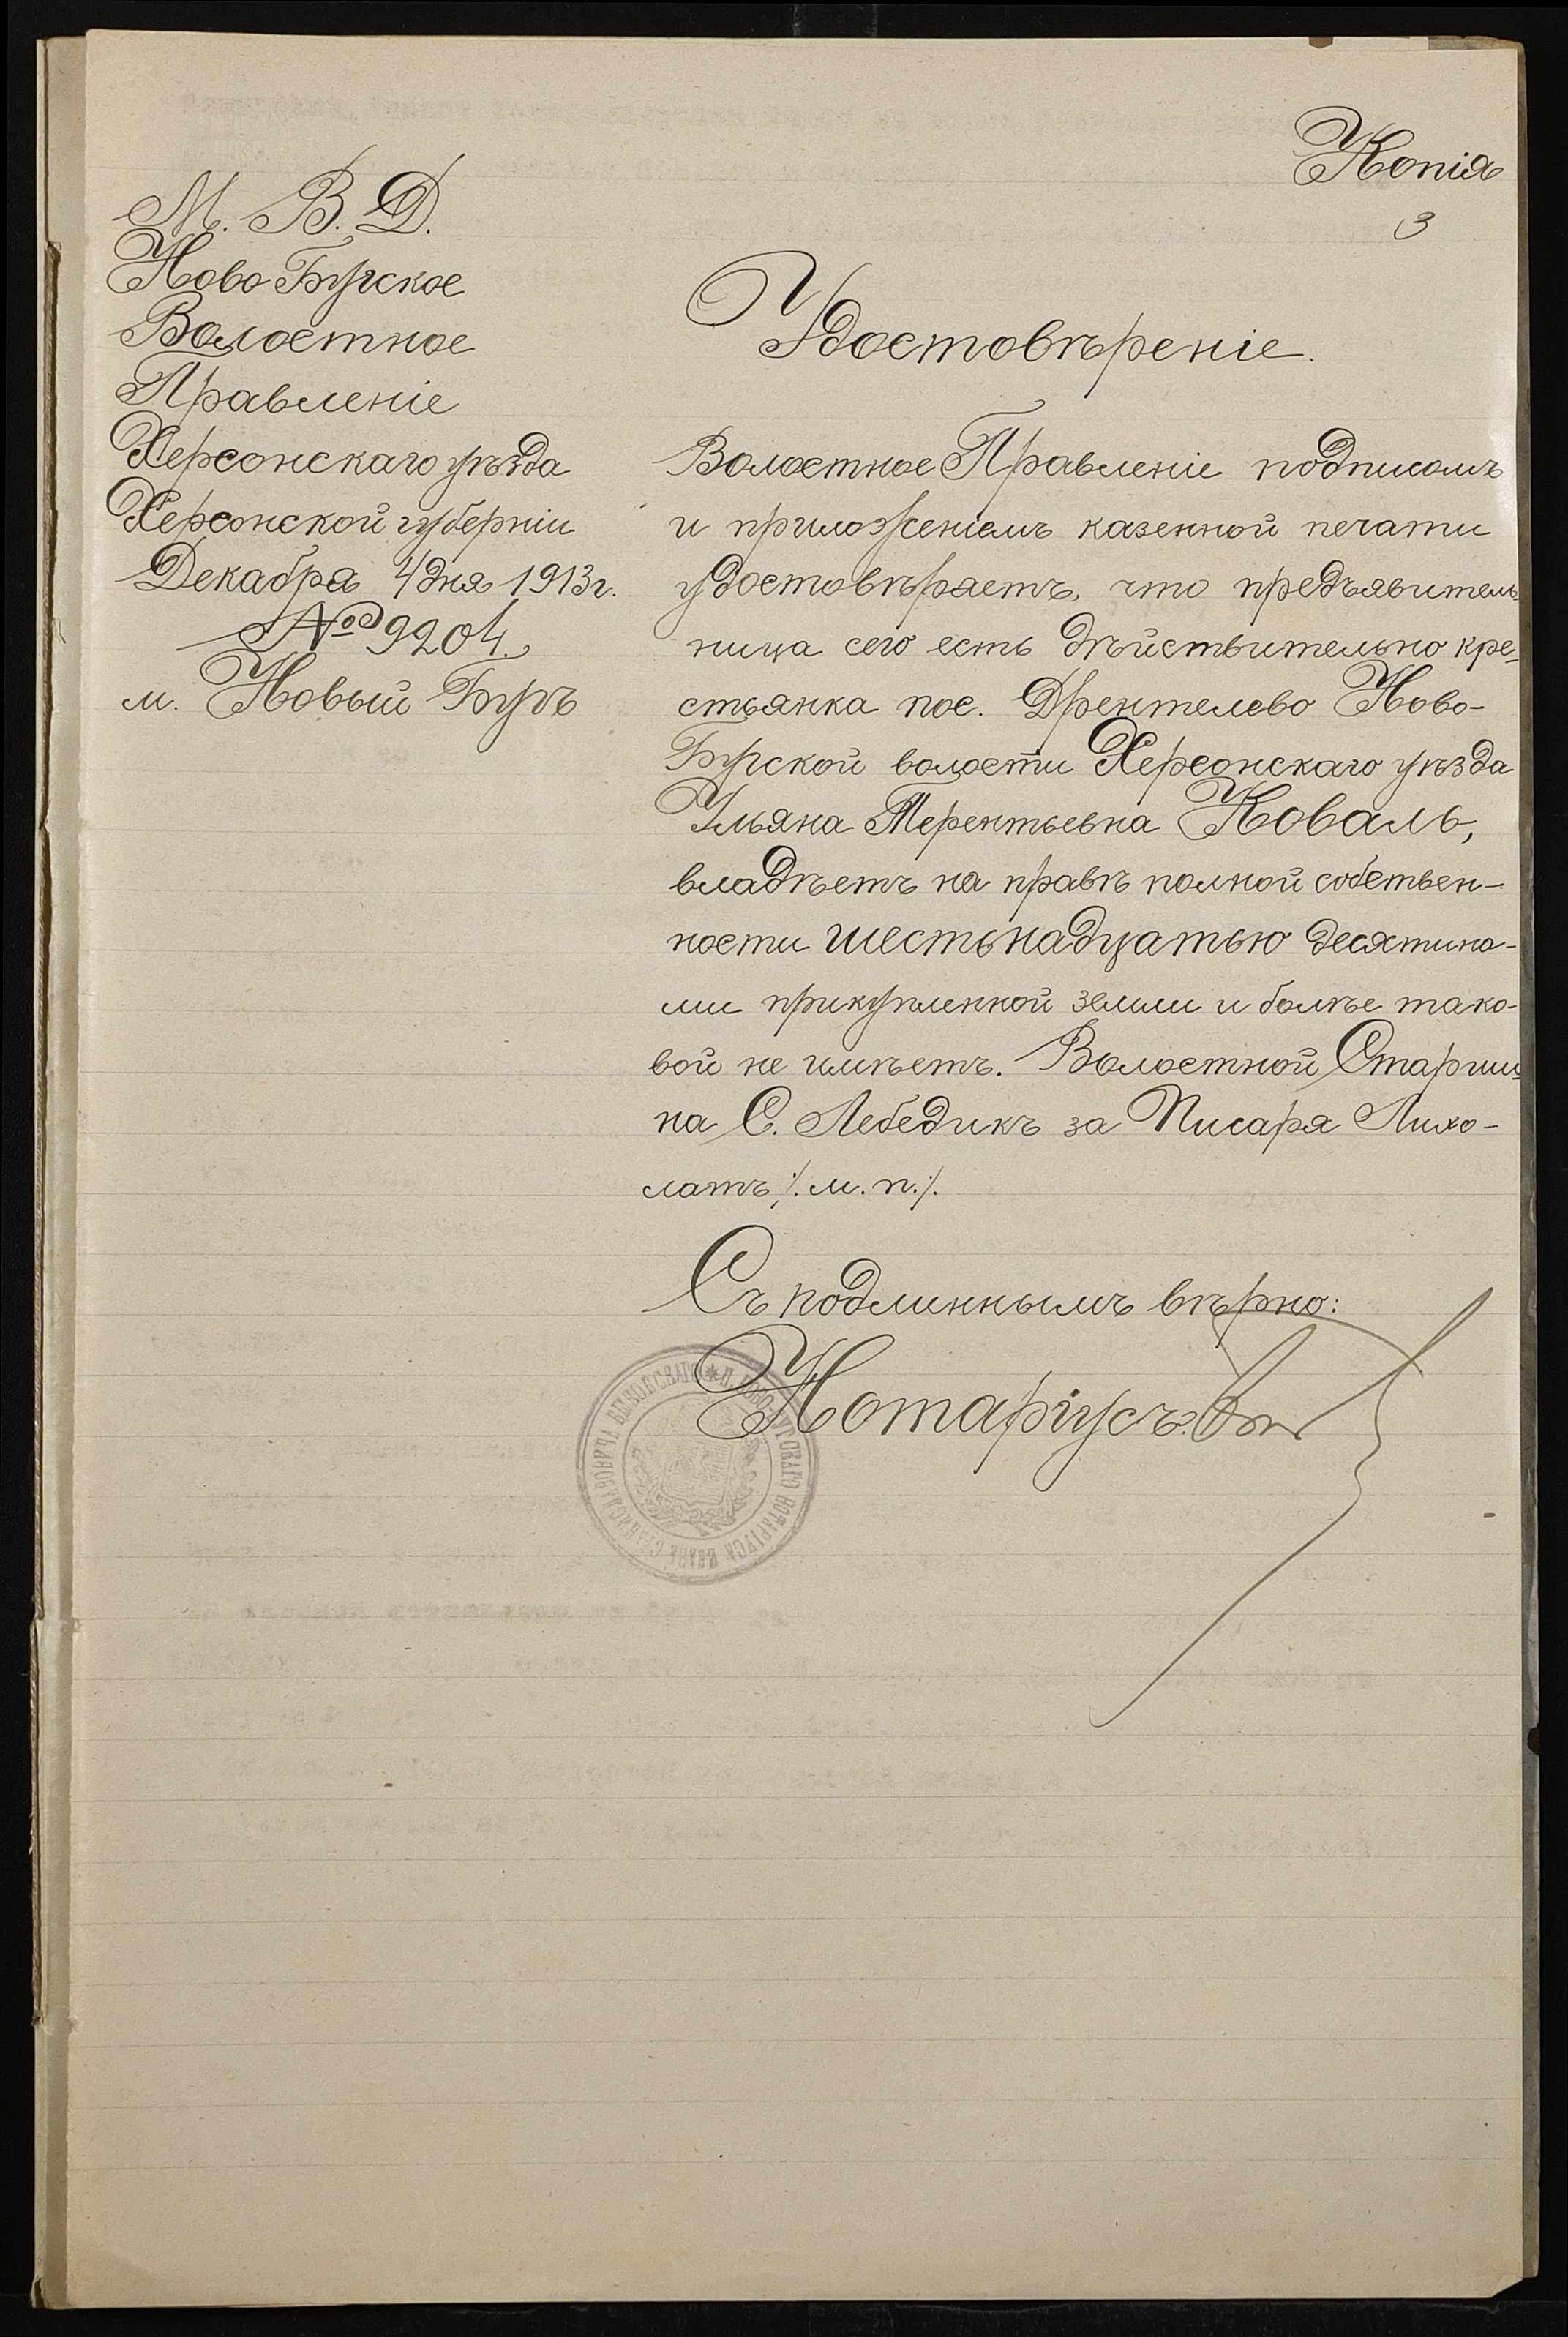 Копія
3
М. В. Д.
Ново Бугское
Волостное
Правленіе
Херсонскаго уѣзда
Херсонской губерніи
Декабря 4 дня 1913 г.
№ 9204.
м. Новый Бугъ
Удостовѣреніе.
Волостное Правленіе подписомъ
и приложеніемъ казенной печати
удостовѣряетъ, что предъявитель-
ница сего есть дѣйствительно кре-
стьянка пос. Дрентелево Ново-
Бугской волости Херсонскаго уѣзда
Ульяна Терентьевна Коваль,
владѣетъ на правѣ полной собствен-
ности шестьнадцатью десятина-
ми прикупленной земли и болѣе тако-
вой не имѣетъ. Волостной Старши-
на С. Лебедикъ за Писаря Лихо-
латъ /. м. п. /.
Съ подлиннымъ вѣрно:
Нотаріусъ
НОТАРІУСА ИВАНА СТАНИСЛАВОВИЧА